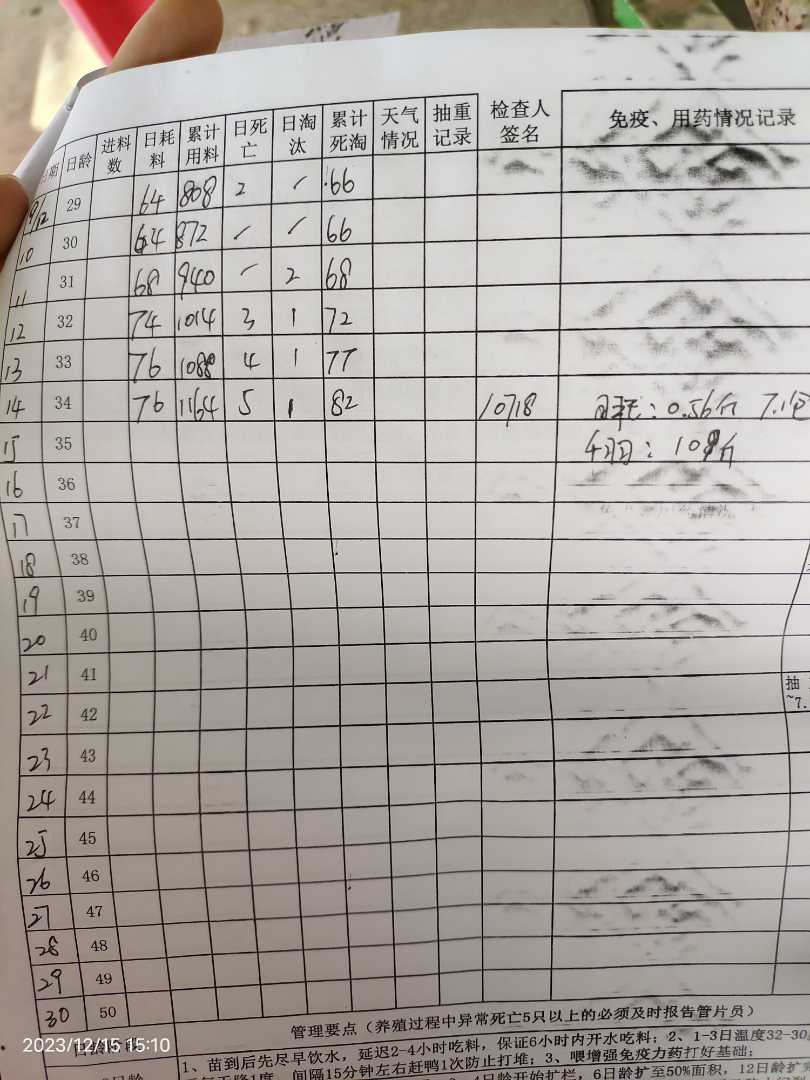 日龄 进料数 日耗料 累计用料 日死亡 日淘汰 累计死淘 天气情况 抽重记录 检查人签名 免疫、用药情况记录
9/12 29 64 808 2 / 66
10 30 64 872 / / 66
11 31 68 940 / 2 68
12 32 74 1014 3 1 72
13 33 76 1088 4 1 77
14 34 76 1164 5 1 82 10718 日耗:0.56斤 7.1包
15 35 109斤
16 36
17 37
18 38
19 39
20 40
21 41
抽
22 42
~7.
23 43
24 44
25 45
26 46
27 47
28 48
29 49
30 50
管理要点(养殖过程中异常死亡5只以上的必须及时报告管片员)
2023/12/15 15:10
1、苗到后先尽早饮水,延迟2-4小时吃料,保证6小时内开水吃料;2、1-3日温度32-30
间隔15分钟左右赶鸭1次防止打堆;3、喂增强免疫力药打好基础;
日龄开始扩栏,6日龄扩至50%面积,12日龄扩